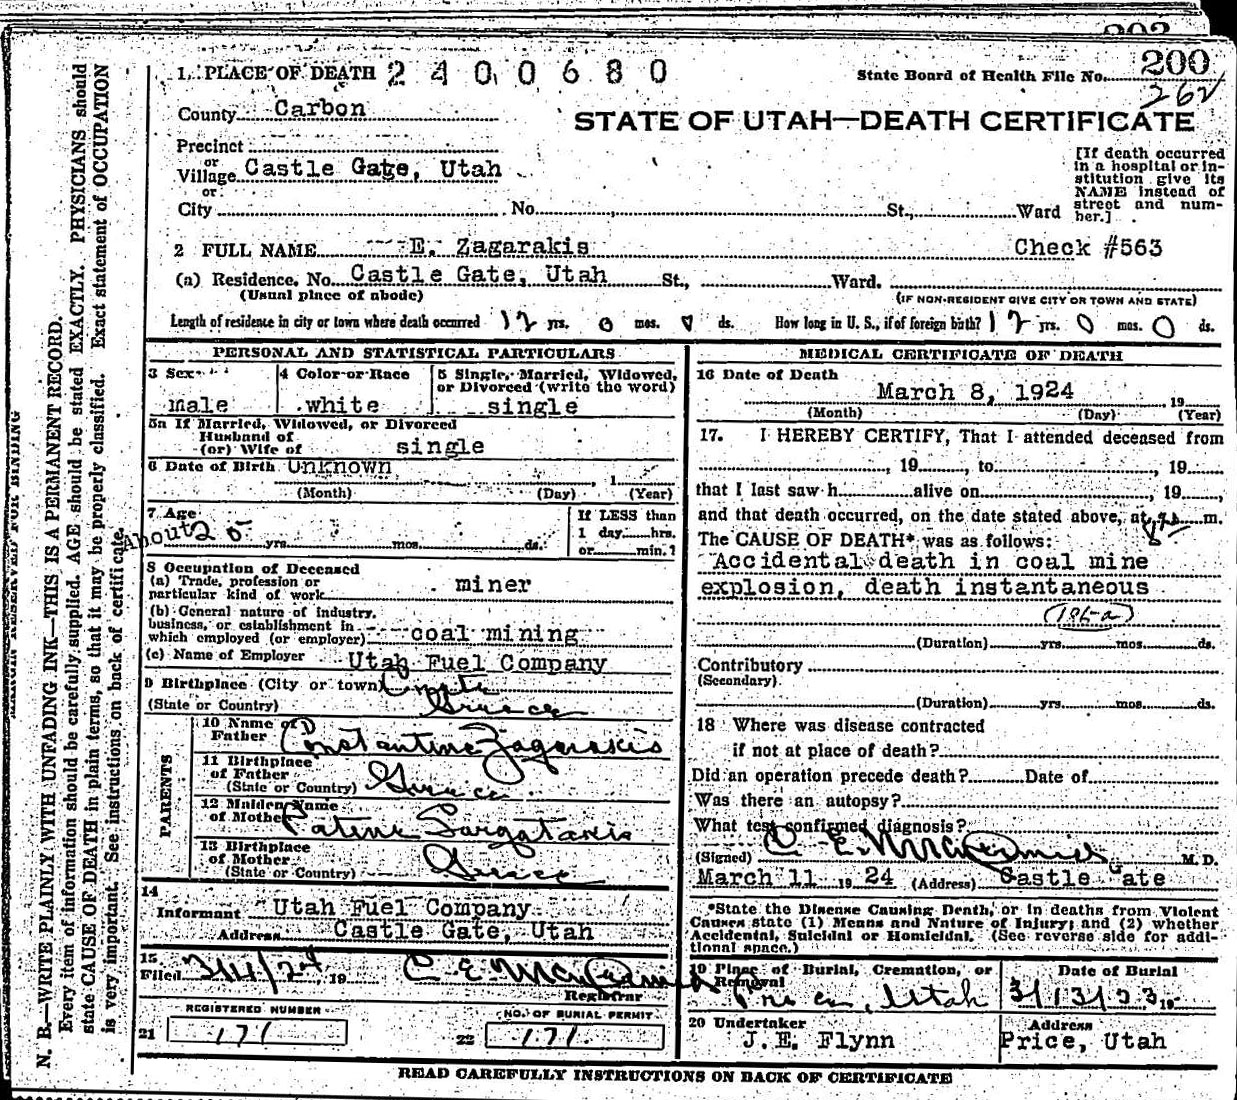 202
1. PLACE OF DEATH 2400680
State Board of Health File No. 200
262
County Carbon
STATE OF UTAH—DEATH CERTIFICATE
Precinct
or
Village Castle Gate, Utah
or
City No. St., Ward
[If death occurred
in a hospital or in-
stitution give its
NAME instead of
street and num-
ber.]
2 FULL NAME E. Zagarakis Check #563
(a) Residence. No. Castle Gate, Utah St., Ward.
(Usual place of abode) (IF NON-RESIDENT GIVE CITY OR TOWN AND STATE)
Length of residence in city or town where death occurred 12 yrs. 0 mos. 0 ds. How long in U. S., if of foreign birth? 12 yrs. 0 mos. 0 ds.
PERSONAL AND STATISTICAL PARTICULARS
3 Sex male
4 Color or Race white
5 Single, Married, Widowed,
or Divorced (write the word)
single
5a If Married, Widowed, or Divorced
Husband of
(or) Wife of single
6 Date of Birth Unknown , 1
(Month) (Day) (Year)
7 Age
About 25 yrs. mos. ds.
If LESS than
1 day hrs.
or min.?
8 Occupation of Deceased
(a) Trade, profession or
particular kind of work miner
(b) General nature of industry,
business, or establishment in
which employed (or employer) coal mining
(c) Name of Employer Utah Fuel Company
9 Birthplace (City or town) Crete
(State or Country) Greece
PARENTS
10 Name of
Father Constantine Zagarakis
11 Birthplace
of Father
(State or Country) Greece
12 Maiden Name
of Mother
13 Birthplace
of Mother
(State or Country) Greece
14
Informant Utah Fuel Company
Address Castle Gate, Utah
15
Filed 3/14/24, 19 C E McDermid
Registrar
REGISTERED NUMBER
21 171
NO. OF BURIAL PERMIT
22 171
MEDICAL CERTIFICATE OF DEATH
16 Date of Death
March 8, 1924 19
(Month) (Day) (Year)
17. I HEREBY CERTIFY, That I attended deceased from
, 19 , to , 19
that I last saw h alive on , 19 ,
and that death occurred, on the date stated above, at m.
The CAUSE OF DEATH* was as follows:
Accidental death in coal mine
explosion, death instantaneous
(Duration) yrs. mos. ds.
Contributory
(Secondary)
(Duration) yrs. mos. ds.
18 Where was disease contracted
if not at place of death?
Did an operation precede death? Date of
Was there an autopsy?
What test confirmed diagnosis?
(Signed) C E McDermid M. D.
March 11 19 24 (Address) Castle Gate
*State the Disease Causing Death, or in deaths from Violent
Causes state (1) Means and Nature of Injury; and (2) whether
Accidental, Suicidal or Homicidal. (See reverse side for addi-
tional space.)
19 Place of Burial, Cremation, or
Removal
Price, Utah
Date of Burial
3/13/23 19
20 Undertaker
J.E. Flynn
Address
Price, Utah
READ CAREFULLY INSTRUCTIONS ON BACK OF CERTIFICATE
MARGIN RESERVED FOR BINDING
N. B.—WRITE PLAINLY WITH UNFADING INK—THIS IS A PERMANENT RECORD.
Every item of information should be carefully supplied. AGE should be stated EXACTLY. PHYSICIANS should
state CAUSE OF DEATH in plain terms, so that it may be properly classified. Exact statement of OCCUPATION
is very important. See instructions on back of certificate.